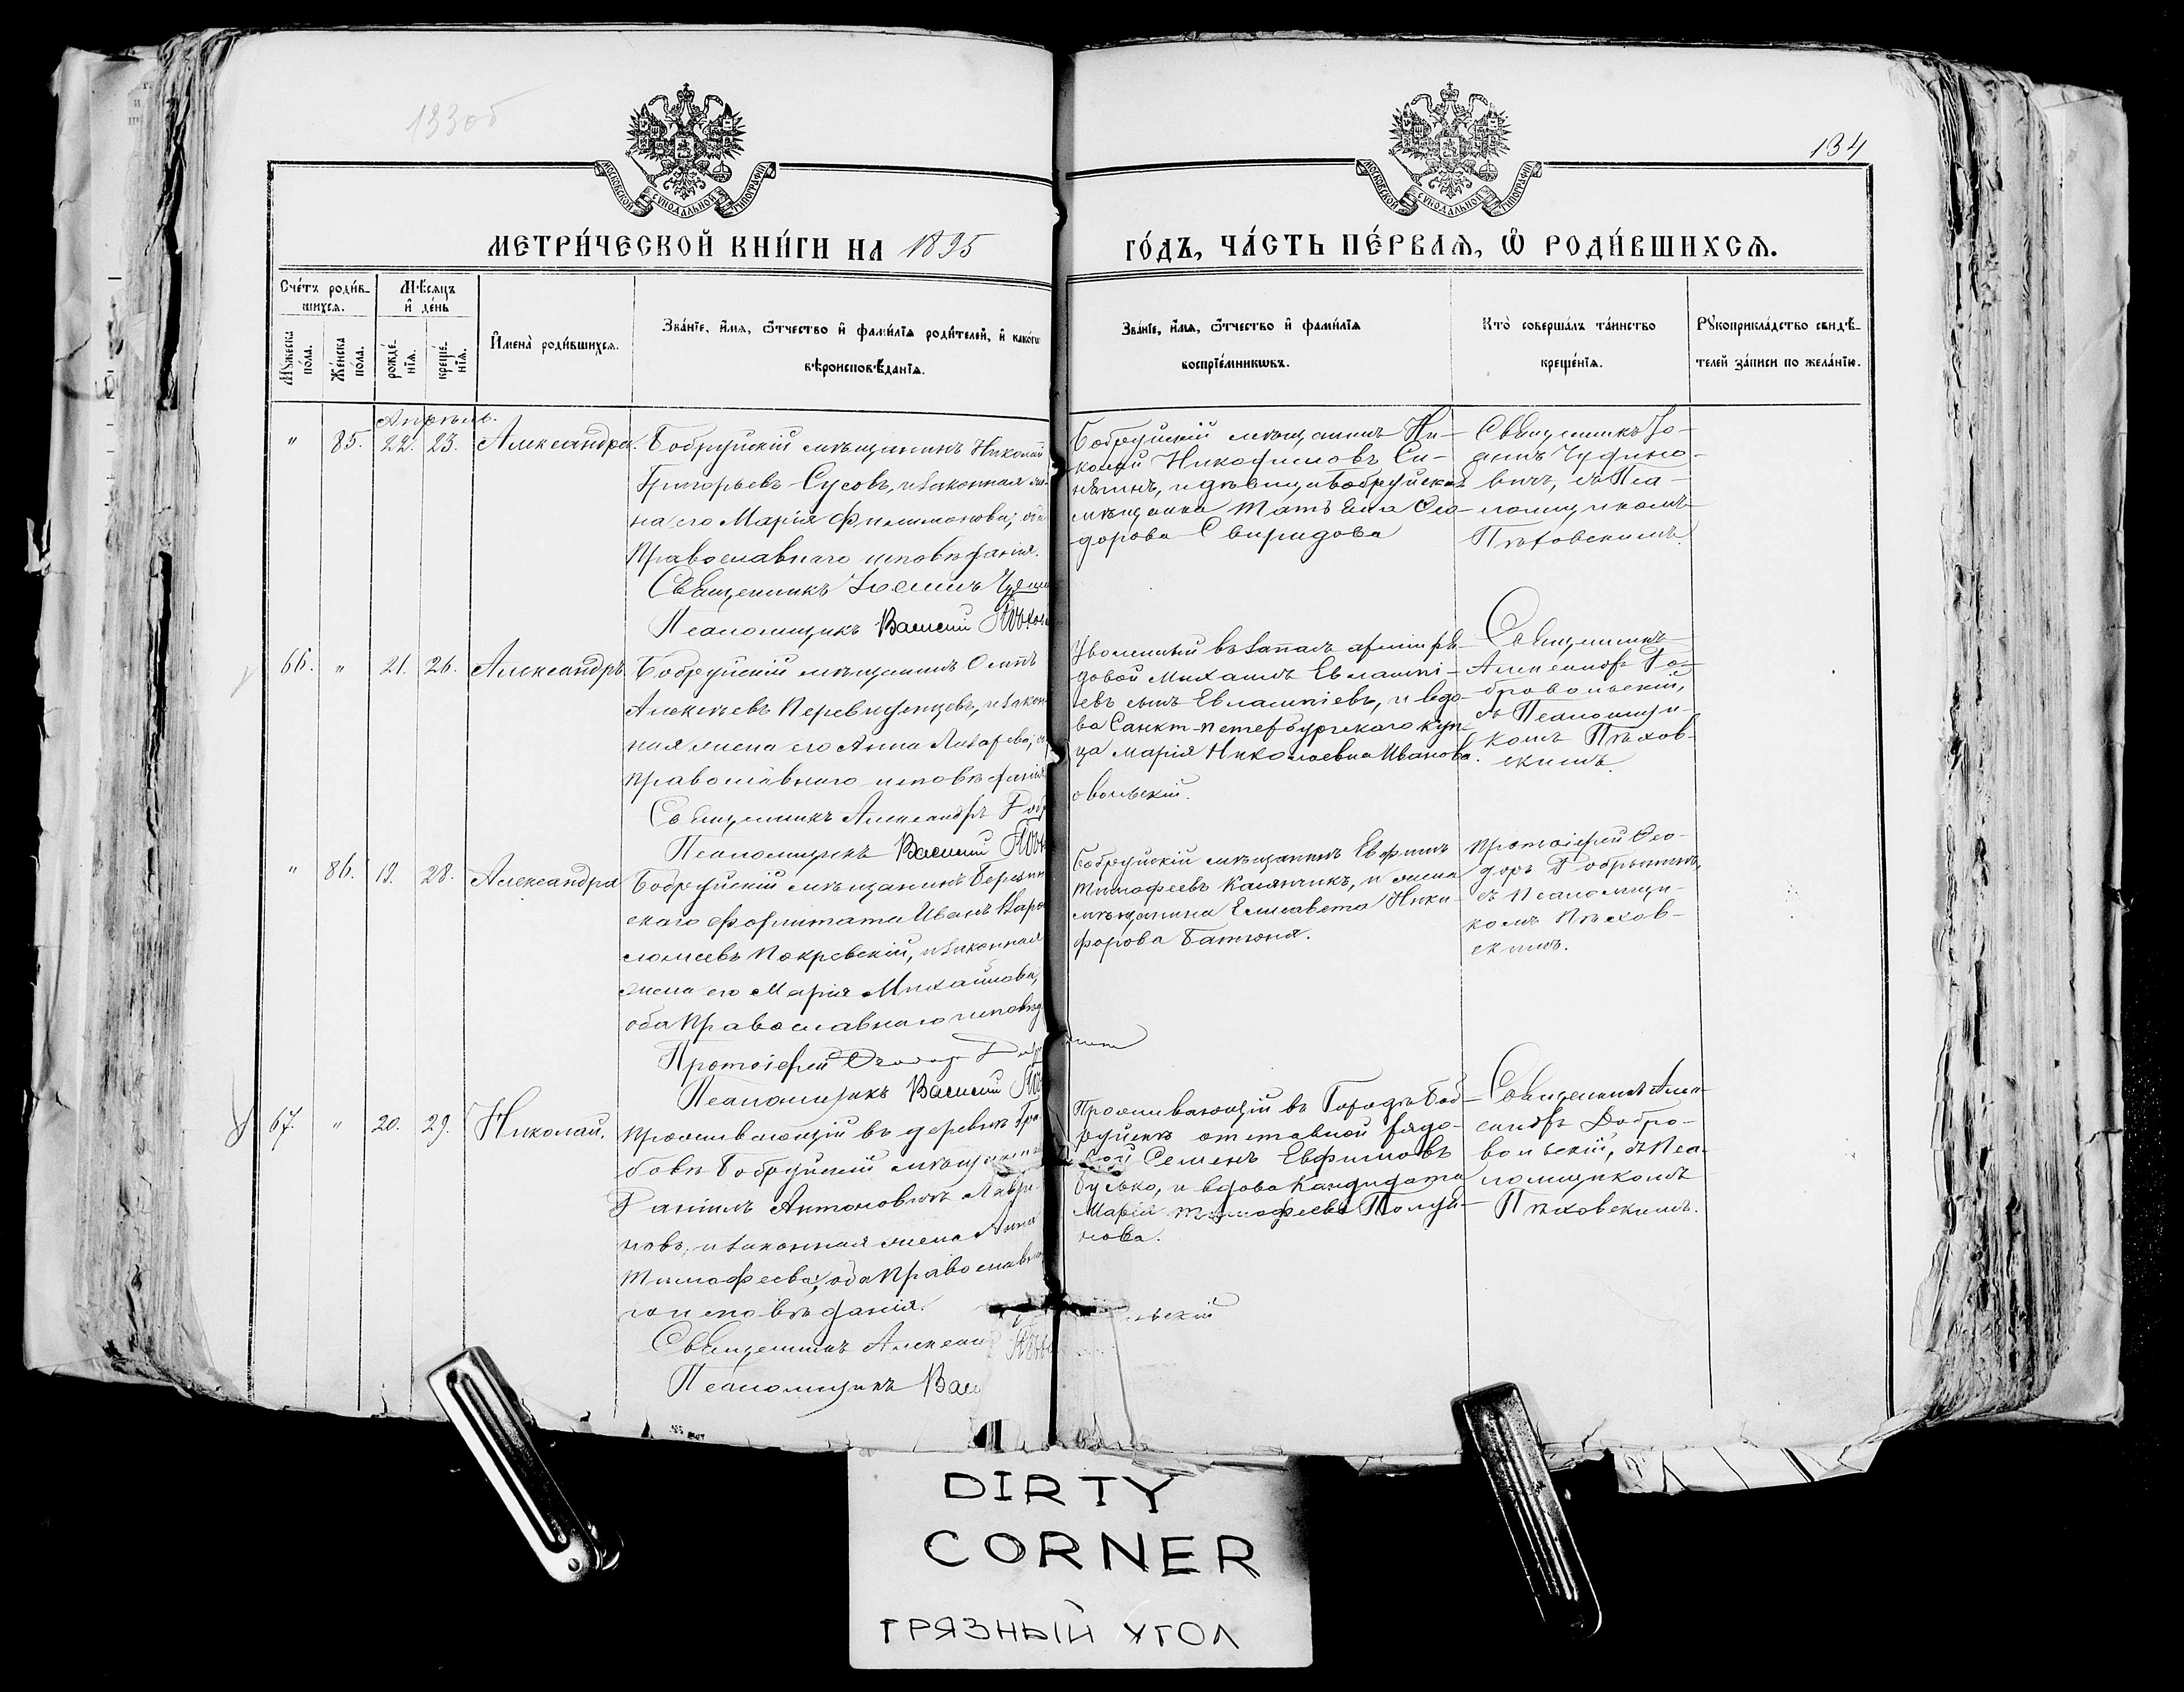 133об
134
МОСКОВСКОЙ СѴНОДАЛЬНОЙ ТИПОГРАФІИ
МОСКОВСКОЙ СѴНОДАЛЬНОЙ ТИПОГРАФІИ
МЕТРИ́ЧЕСКОЙ КНИ́ГИ НА 1895
ГО́ДЪ, ЧА́СТЬ ПЕ́РВАѦ, Ѿ РОДИ́ВШИХСѦ.
Сче́тъ роди́в-
шихсѧ.
Мꙋ́жеска по́ла.
Же́нска по́ла.
Мѣ́сяцъ
и҆ де́нь
рожде́-
нїѧ.
креще́-
нїѧ.
И҆мена̀ роди́вшихсѧ.
Зва́нїе, и҆́мѧ, ѻ҆́тчество и҆ фами́лїѧ роди́телей, и҆ како́гѡ
вѣроисповѣ́данїѧ.
Зва́нїе, и҆́мѧ, ѻ҆́тчество и҆ фами́лїѧ
воспрїе́мникѡвъ.
Кто̀ соверша́лъ та́инство
креще́нїѧ.
Рꙋкоприкла́дство свидѣ́-
телей за́писи по жела́нїю.
Апрѣль.
" 85. 22. 23. Александра.
Бобруйскій мѣщанинъ Николай
Григорьевъ Сусовъ, и законная же-
на его Марія Филимонова; оба
Православнаго исповѣданія.
Священникъ Іоаннъ
Псаломщикъ Василій
Бобруйскій мѣщанинъ Ни-
колай Никофимовъ Си-
нягинъ, и дѣвица Бобруйская
мѣщанка Татьяна Ѳео-
дорова Свиридова
Священникъ Іо-
аннъ
вичъ, съ Пса-
ломщикомъ
Пѣховскимъ.
66. " 21. 26. Александръ
Бобруйскій мѣщанинъ Осипъ
Алексѣевъ Переві, и закон-
ная жена его Анна Лазарева;
православнаго исповѣданія
Священникъ Александръ Добр
Псаломщикъ Василій
Уволенный въ запасъ арміи ря-
довой Михаилъ Евлампі-
евъ сынъ Евлампіевъ, и вдо-
ва Санкт-петербургскаго куп-
ца Марія Николаевна Иванова.
овольскій.
Священникъ
Александръ До-
бровольскій,
съ Псаломщи-
комъ Пѣхов-
скимъ.
" 86. 19. 28. Александра
Бобруйскій мѣщанинъ Березин-
скаго форштата Иванъ Варо-
ломеевъ Покревскій, и законная
жена его Марія Михайлова,
оба Православнаго исповѣд
Протоіерей Ѳеодор
Псаломщикъ Василій
Бобруйскій мѣщанинъ Евфимъ
Тимофеевъ Касянчикъ, и жена
мѣщанина Елисавета Ники-
форова Батюня.
Протоіерей Ѳео-
доръ Добрынинъ,
съ Псаломщи-
комъ Пѣхов-
скимъ.
67. " 20. 29. Николай.
Проживающій въ деревнѣ
бовѣ Бобруйскій мѣщанинъ
Даніилъ Антоновичъ Лаври-
новъ, и законная жена Анна
Тимофеева; оба Православна-
го исповѣданія.
Священникъ Алексан
Псаломщикъ Вас
Проживающій въ Городѣ Боб-
руйскѣ отставной рядо-
вой Семенъ Евфимовъ
Бусько, и вдова Кандидата
Марія Тимофеева Полуя-
нова.
льскій
Священникъ Алек-
сандръ Добро-
вольскій, съ Пса-
ломщикомъ
Пѣховскимъ.
DIRTY
CORNER
ГРЯЗНЫЙ УГОЛ